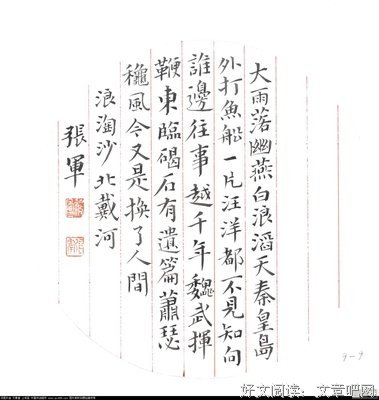 大雨落幽燕白浪滔天秦皇島
外打魚船一片汪洋都不見知向
誰邊往事越千年魏武揮
鞭東臨碣石有遺篇蕭瑟
穐風今又是換了人間
浪淘沙北戴河
張軍
9-9
好文阅读：文章吧网